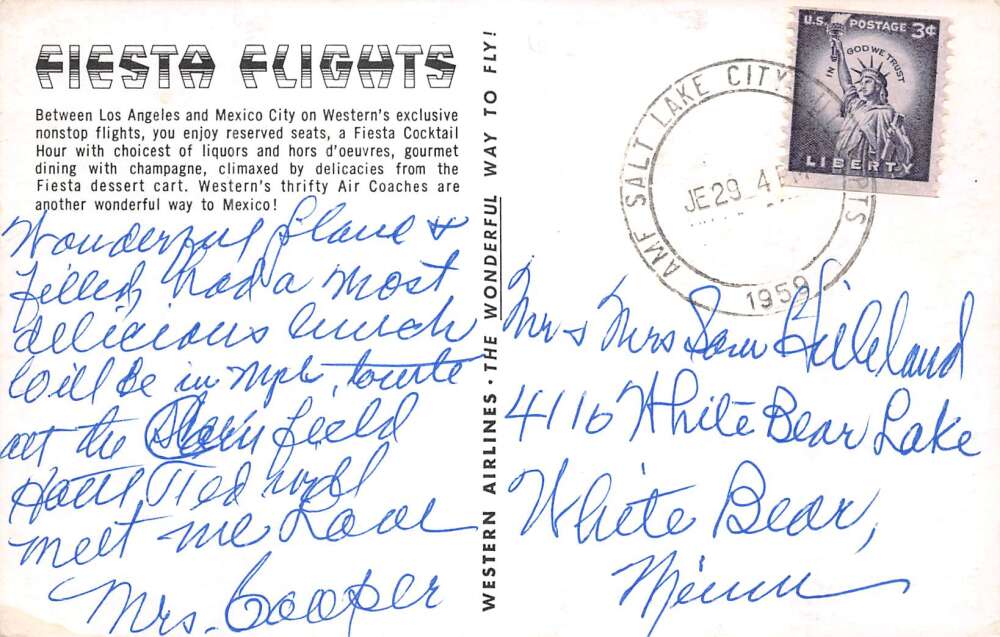 FIESTA FLIGHTS
Between Los Angeles and Mexico City on Western's exclusive
nonstop flights, you enjoy reserved seats, a Fiesta Cocktail
Hour with choicest of liquors and hors d'oeuvres, gourmet
dining with champagne, climaxed by delicacies from the
Fiesta dessert cart. Western's thrifty Air Coaches are
another wonderful way to Mexico!
Wonderful plane &
filled, had a most
delicious lunch
Will be in Mpls, tonite
at the field
Hotel, Ted will
meet me Love
Mrs. Cooper
WESTERN AIRLINES · THE WONDERFUL WAY TO FLY!
U.S. POSTAGE 3¢
IN GOD WE TRUST
LIBERTY
AMF SALT LAKE CITY
JE 29 4 PM
1959
Mr & Mrs Sam Hilleland
4110 White Bear Lake
White Bear,
Minn